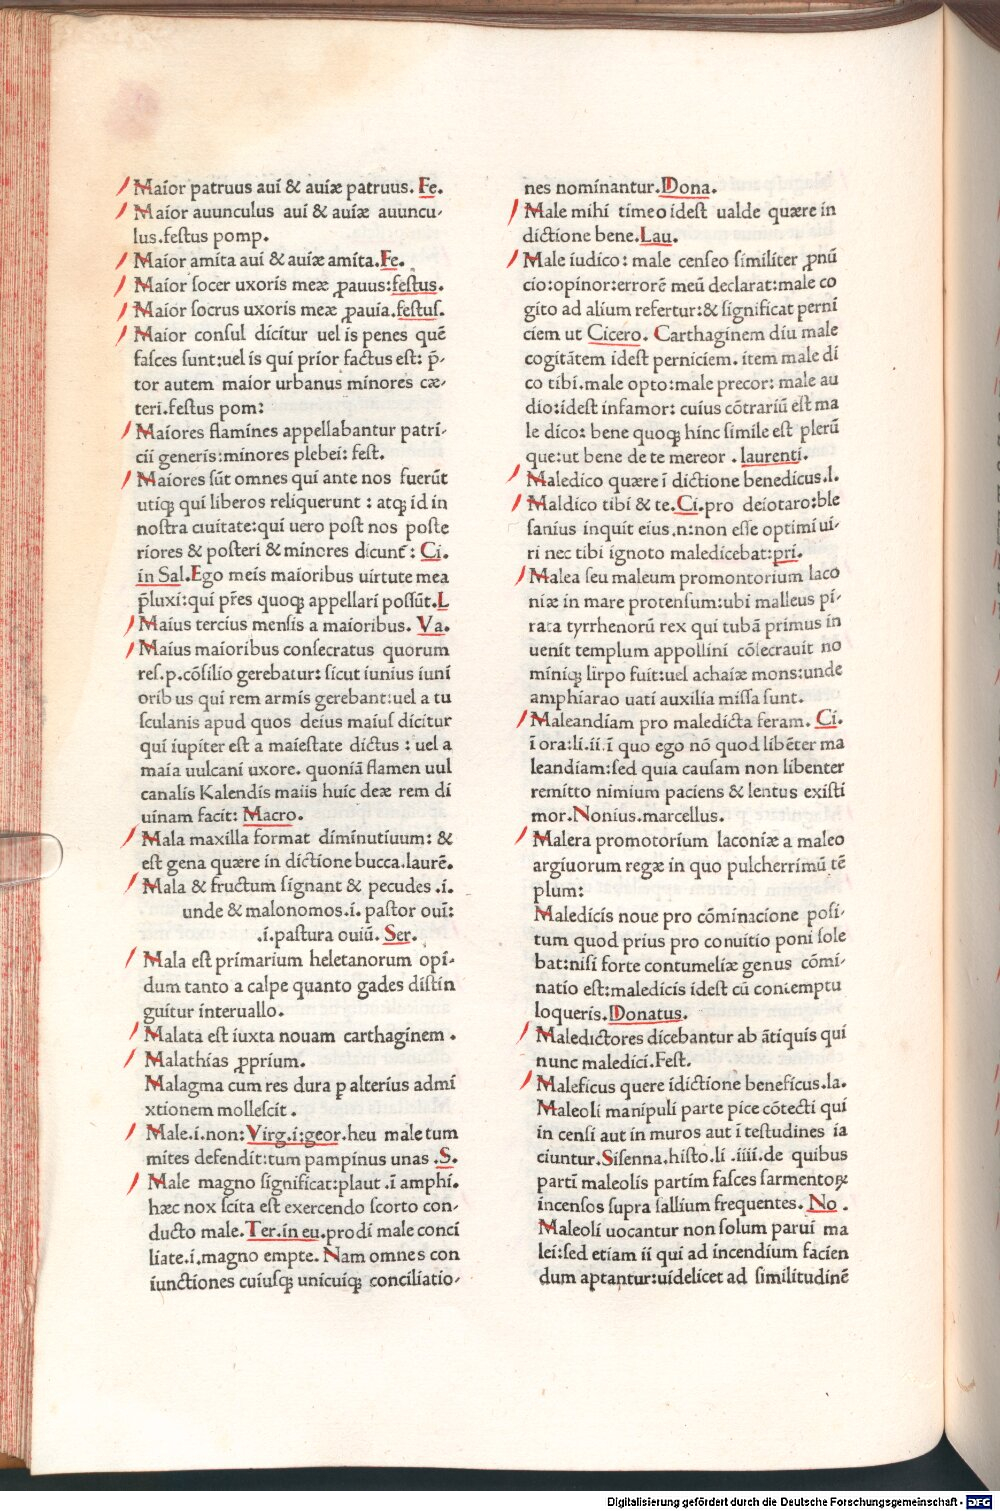 Maior patruus aui & auiæ patruus. Fe.
Maior auunculus aui & auiæ auuncu-
lus.festus pomp.
Maior amita aui & auiæ amita.Fe.
Maior socer uxoris meæ ꝓauus:festus.
Maior socrus uxoris meæ ꝓauia.festus.
Maior consul dicitur uel is penes quē
fasces sunt:uel is qui prior factus est: p̄-
tor autem maior urbanus minores cæ-
teri.festus pom:
Maiores flamines appellabantur patri-
cii generis:minores plebei: fest.
Maiores sūt omnes qui ante nos fuerūt
utiqꝫ qui liberos reliquerunt : atqꝫ id in
nostra ciuitate:qui uero post nos poste
riores & posteri & minores dicunt̄ : Ci.
in Sal.Ego meis maioribus uirtute mea
p̄luxi:qui pr̄es quoqꝫ appellari possūt.L
Maius tercius mensis a maioribus. Va.
Maius maioribus consecratus quorum
res.p.cōsilio gerebatur: sicut iunius iuni
orib us qui rem armis gerebant:uel a tu
sculanis apud quos deius maius dicitur
qui iupiter est a maiestate dictus : uel a
maia uulcani uxore. quoniā flamen uul
canalis Kalendis maiis huic deæ rem di
uinam facit: Macro.
Mala maxilla format diminutiuum: &
est gena quære in dictione bucca.laurē.
Mala & fructum signant & pecudes .i.
unde & malonomos.i. pastor ouiū:
.i.pastura ouiū. Ser.
Mala est primarium heletanorum opi-
dum tanto a calpe quanto gades distin
guitur interuallo.
Malata est iuxta nouam carthaginem .
Malathias ꝓprium.
Malagma cum res dura ꝑ alterius admi
xtionem mollescit .
Male.i.non: Virg.i:geor.heu male tum
mites defendit:tum pampinus unas .S.
Male magno significat:plaut .ī amphi.
hæc nox scita est exercendo scorto con-
ducto male.Ter.in eu.prodi male conci
liate.i.magno empte. Nam omnes con
iunctiones cuiusqꝫ unicuiqꝫ conciliatio-
nes nominantur.Dona.
Male mihi timeo idest ualde quære in
dictione bene.Lau.
Male iudico: male censeo similiter ꝓnū
cio:opinor:errorē meū declarat:male co
gito ad alium refertur:& significat perni
ciem ut Cicero. Carthaginem diu male
cogitātem idest perniciem. item male di
co tibi.male opto:male precor: male au
dio:idest infamor: cuius cōtrariū est ma
le dico: bene quoqꝫ hinc simile est plerū
que:ut bene de te mereor .laurenti.
Maledico quære ī dictione benedicus.l.
Maldico tibi & te.Ci.pro deiotaro:ble
sanius inquit eius .n:non esse optimi ui-
ri nec tibi ignoto maledicebat:pri.
Malea seu maleum promontorium laco
niæ in mare protensum:ubi malleus pi-
rata tyrrhenorū rex qui tubā primus in
uenit templum appollini cōsecrauit no
miniqꝫ lirpo fuit:uel achaiæ mons:unde
amphiarao uati auxilia missa sunt.
Maleandiam pro maledicta feram. Ci.
ī ora:li.ii.ī quo ego nō quod libēter ma
leandiam:sed quia causam non libenter
remitto nimium paciens & lentus existi
mor.Nonius.marcellus.
Malera promotorium laconiæ a maleo
argiuorum regæ in quo pulcherrimū tē
plum:
Maledicis noue pro cōminacione posi-
tum quod prius pro conuitio poni sole
bat:nisi forte contumeliæ genus cōmi-
natio est:maledicis idest cū contemptu
loqueris.Donatus.
Maledictores dicebantur ab ātiquis qui
nunc maledici.Fest.
Maleficus quere idictione beneficus.la.
Maleoli manipuli parte pice cōtecti qui
in censi aut in muros aut ī testudines ia
ciuntur.Sisenna.histo.li .iiii.de quibus
partī maleolis partim fasces sarmentoꝝ
incensos supra sallium frequentes. No .
Maleoli uocantur non solum parui ma
lei:sed etiam ii qui ad incendium facien
dum aptantur:uidelicet ad similitudinē
Digitalisierung gefördert durch die Deutsche Forschungsgemeinschaft - DFG